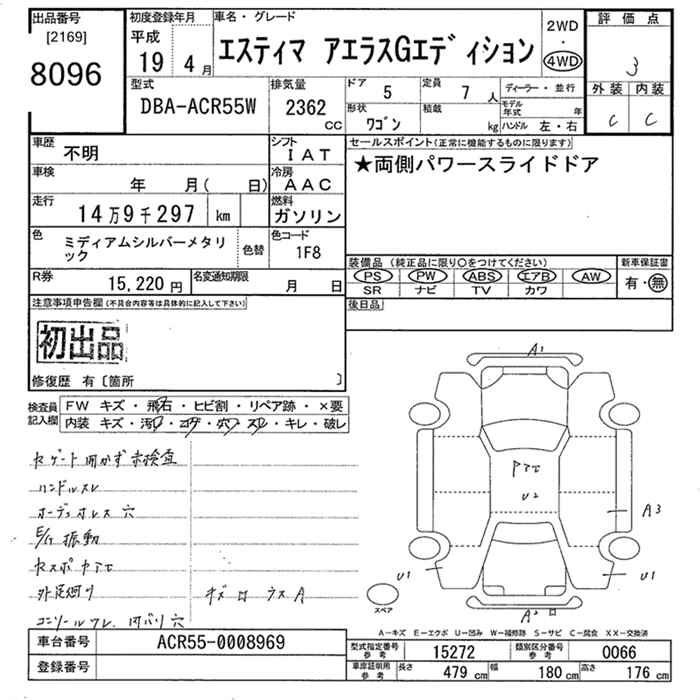 出品番号
[2169]
8096
初度登録年月
平成
19 4 月
車名・グレード
エスティマ アエラスGエディション
2WD
・
4WD
評価点
3
外装 内装
C C
型式
DBA-ACR55W
排気量
2362
CC
ドア
5
定員
7 人
形状
ワゴン
積載
kg
ディーラー・並行
モデル年式
年
ハンドル 左・右
車歴
不明
シフト
IAT
車検
年 月( 日)
冷房
AAC
走行
14万9千297 km
燃料
ガソリン
色
ミディアムシルバーメタリック
色替
色コード
1F8
R券
15,220 円
名変通知期限
月 日
セールスポイント(正常に機能するものに限ります)
★両側パワースライドドア
装備品 (純正品に限り○をつけてください)
PS PW ABS エアB AW
SR ナビ TV カワ
新車保証書
有・無
後日品
注意事項申告欄(不具合内容等は具体的に記入して下さい)
初出品
修復歴 有〔箇所 〕
検査員記入欄
FW キズ・飛石・ヒビ割・リペア跡・×要
内装 キズ・汚レ・コゲ・穴・スレ・キレ・破レ
ハンドルスレ
オーディオレス 穴
E/g 振動
外足廻り
A1
U2
A3
U1
U1
A2
スペア
A-キズ E-エクボ U-凹み W-補修跡 S-サビ C-腐食 XX-交換済
車台番号
ACR55-0008969
登録番号
型式指定番号
参考
15272
類別区分番号
参考
0066
車庫証明用
参考
長さ
479 cm
幅
180 cm
高さ
176 cm